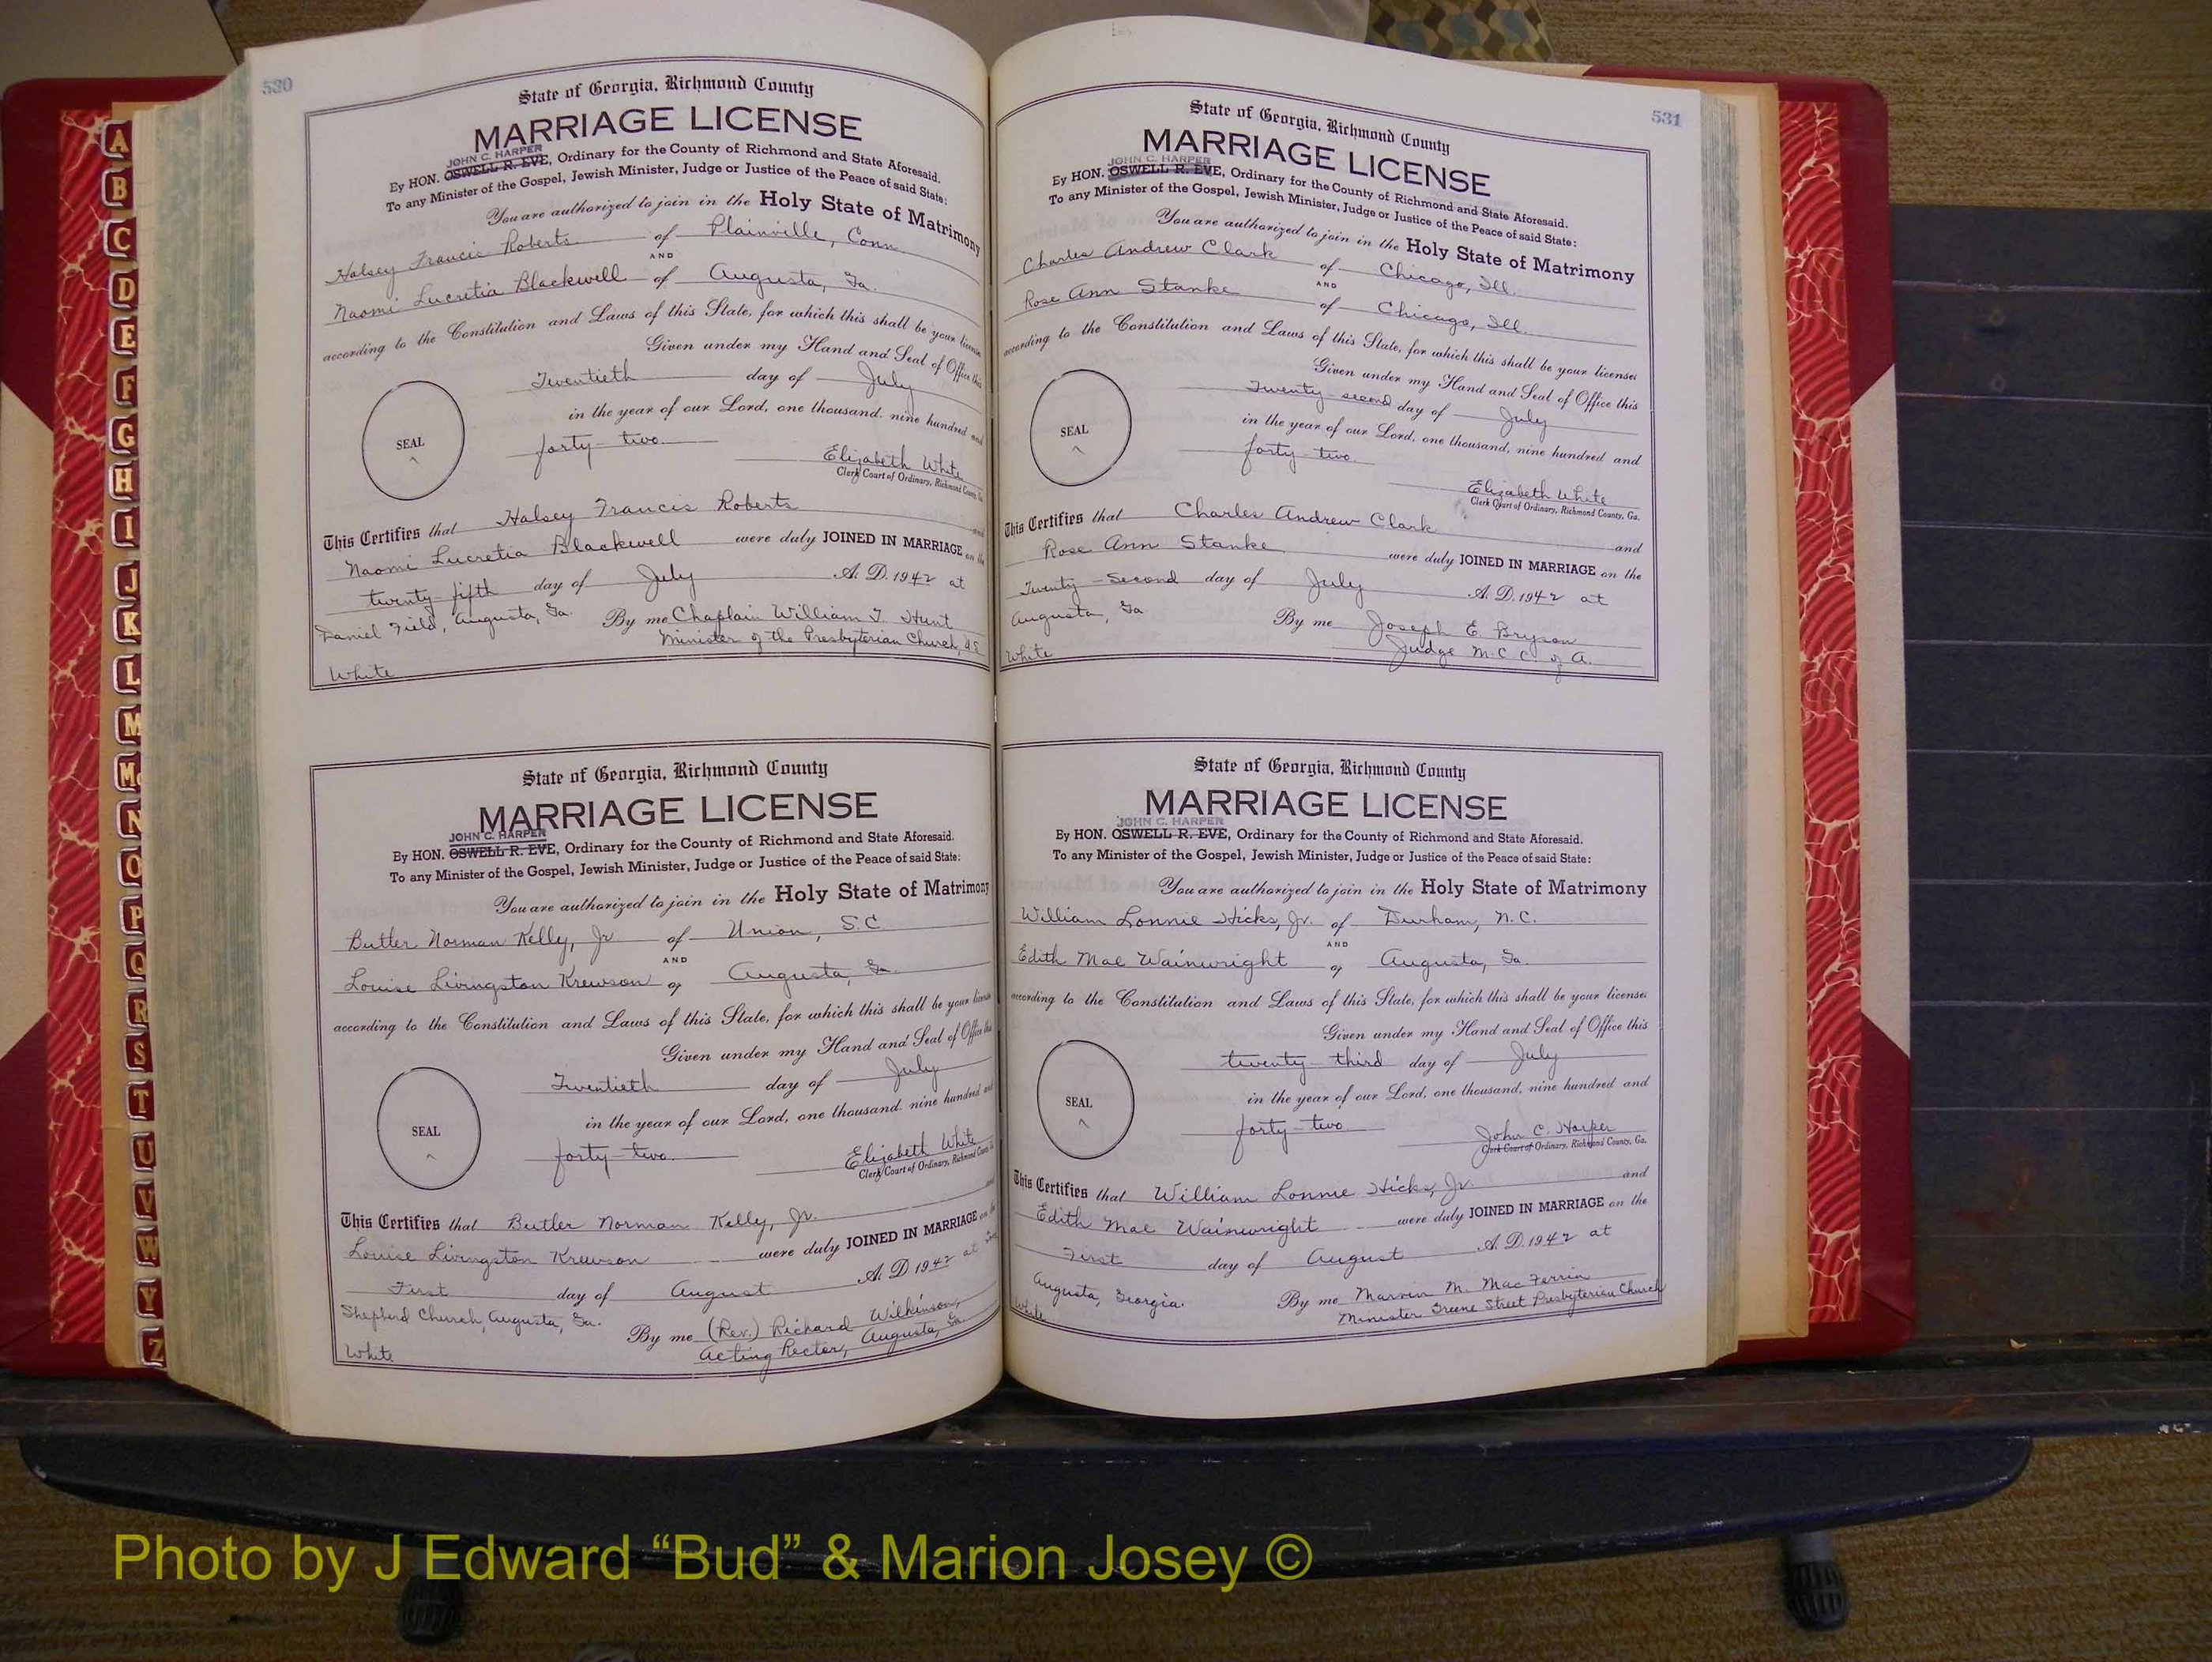 530
State of Georgia, Richmond County
MARRIAGE LICENSE
JOHN C. HARPER
By HON. OSWELL R. EVE, Ordinary for the County of Richmond and State Aforesaid.
To any Minister of the Gospel, Jewish Minister, Judge or Justice of the Peace of said State:
You are authorized to join in the Holy State of Matrimony
Halsey Francis Roberts of Plainville, Conn
AND
Naomi Lucretia Blackwell of Augusta, Ga.
according to the Constitution and Laws of this State, for which this shall be your license
Given under my Hand and Seal of Office this
Twentieth day of July
in the year of our Lord, one thousand, nine hundred and
forty-two.
SEAL
Elizabeth White
Clerk Court of Ordinary, Richmond County, Ga.
This Certifies that Halsey Francis Roberts and
Naomi Lucretia Blackwell were duly JOINED IN MARRIAGE on the
twenty-fifth day of July A. D. 1942 at
Daniel Field, Augusta, Ga. By me Chaplain William T. Hunt
Minister of the Presbyterian Church, U.S.
White
State of Georgia, Richmond County
MARRIAGE LICENSE
JOHN C. HARPER
By HON. OSWELL R. EVE, Ordinary for the County of Richmond and State Aforesaid.
To any Minister of the Gospel, Jewish Minister, Judge or Justice of the Peace of said State:
You are authorized to join in the Holy State of Matrimony
Butler Norman Kelly, Jr. of Union, S.C.
AND
Louise Livingston Krewson of Augusta, Ga.
according to the Constitution and Laws of this State, for which this shall be your license
Given under my Hand and Seal of Office this
Twentieth day of July
in the year of our Lord, one thousand, nine hundred and
forty-two.
SEAL
Elizabeth White
Clerk Court of Ordinary, Richmond County, Ga.
This Certifies that Butler Norman Kelly, Jr. and
Louise Livingston Krewson were duly JOINED IN MARRIAGE on the
First day of August A. D. 1942 at
Shepherd Church, Augusta, Ga. By me (Rev.) Richard Wilkinson,
Acting Rector, Augusta, Ga.
White
531
State of Georgia, Richmond County
MARRIAGE LICENSE
JOHN C. HARPER
By HON. OSWELL R. EVE, Ordinary for the County of Richmond and State Aforesaid.
To any Minister of the Gospel, Jewish Minister, Judge or Justice of the Peace of said State:
You are authorized to join in the Holy State of Matrimony
Charles Andrew Clark of Chicago, Ill.
AND
Rose Ann Stanke of Chicago, Ill.
according to the Constitution and Laws of this State, for which this shall be your license
Given under my Hand and Seal of Office this
Twenty-second day of July
in the year of our Lord, one thousand, nine hundred and
forty two.
SEAL
Elizabeth White
Clerk Court of Ordinary, Richmond County, Ga.
This Certifies that Charles Andrew Clark and
Rose Ann Stanke were duly JOINED IN MARRIAGE on the
Twenty-Second day of July A. D. 1942 at
Augusta, Ga By me Joseph E. Bryson
Judge M.C.C. of A.
White
State of Georgia, Richmond County
MARRIAGE LICENSE
JOHN C. HARPER
By HON. OSWELL R. EVE, Ordinary for the County of Richmond and State Aforesaid.
To any Minister of the Gospel, Jewish Minister, Judge or Justice of the Peace of said State:
You are authorized to join in the Holy State of Matrimony
William Lonnie Hicks, Jr. of Durham, N.C.
AND
Edith Mae Wainwright of Augusta, Ga.
according to the Constitution and Laws of this State, for which this shall be your license
Given under my Hand and Seal of Office this
twenty-third day of July
in the year of our Lord, one thousand, nine hundred and
forty-two
SEAL
John C. Harper
Clerk Court of Ordinary, Richmond County, Ga.
This Certifies that William Lonnie Hicks, Jr. and
Edith Mae Wainwright were duly JOINED IN MARRIAGE on the
First day of August A. D. 1942 at
Augusta, Georgia. By me Marvin M. MacFerrin
Minister Greene Street Presbyterian Church
White
A
B
C
D
E
F
G
H
I
J
K
L
M
Mc
N
O
P
Q
R
S
T
U
V
W
Y
Z
Photo by J Edward “Bud” & Marion Josey ©